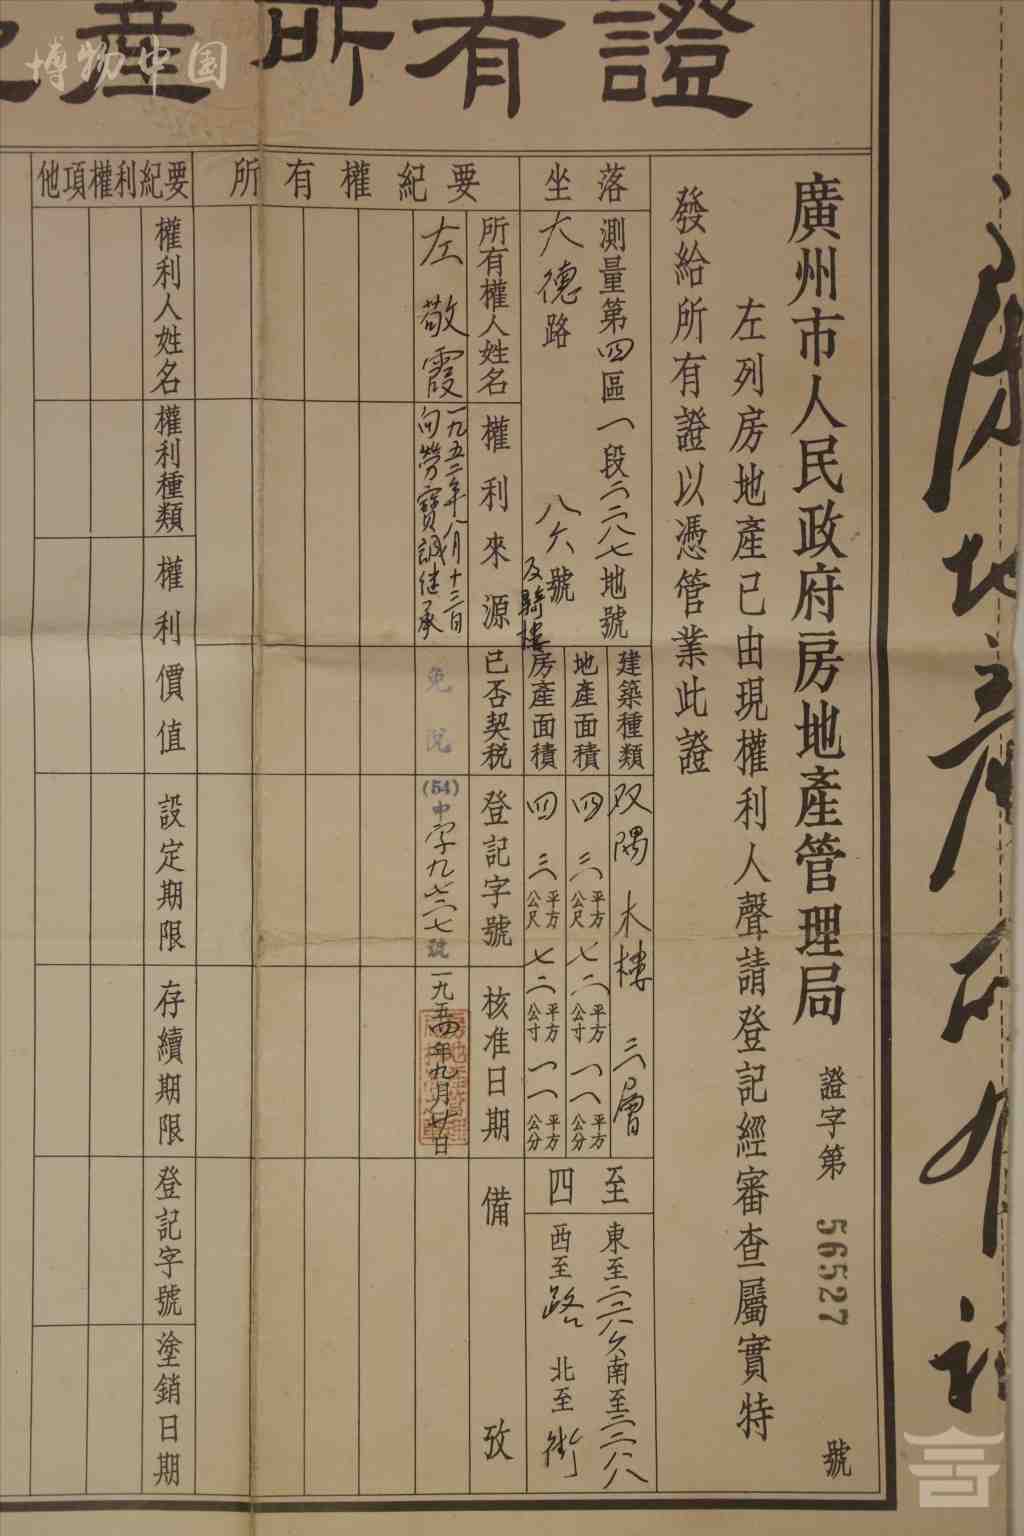 博物中国
產所有證
廣州市人民政府房地產管理局
證字第 56527 號
左列房地產已由現權利人聲請登記經審查屬實特
發給所有證以憑管業此證
坐落
測量第四區一段二二八七地號
大德路 八六號
及騎樓
建築種類
双隅木樓 三層
地產面積
四三平方公尺七二平方公寸一一平方公分
房產面積
四三平方公尺七二平方公寸一一平方公分
四至
東至 南至
西至路 北至街
所有權紀要
所有權人姓名
權利來源
已否契稅
登記字號
核准日期
備攷
左敬霞
一九五二年八月十三日
向勞寶誠继承
免税
(54)中字九 七號
一九五四年九月廿日
他項權利紀要
權利人姓名
權利種類
權利價值
設定期限
存續期限
登記字號
塗銷日期
房地產所有證